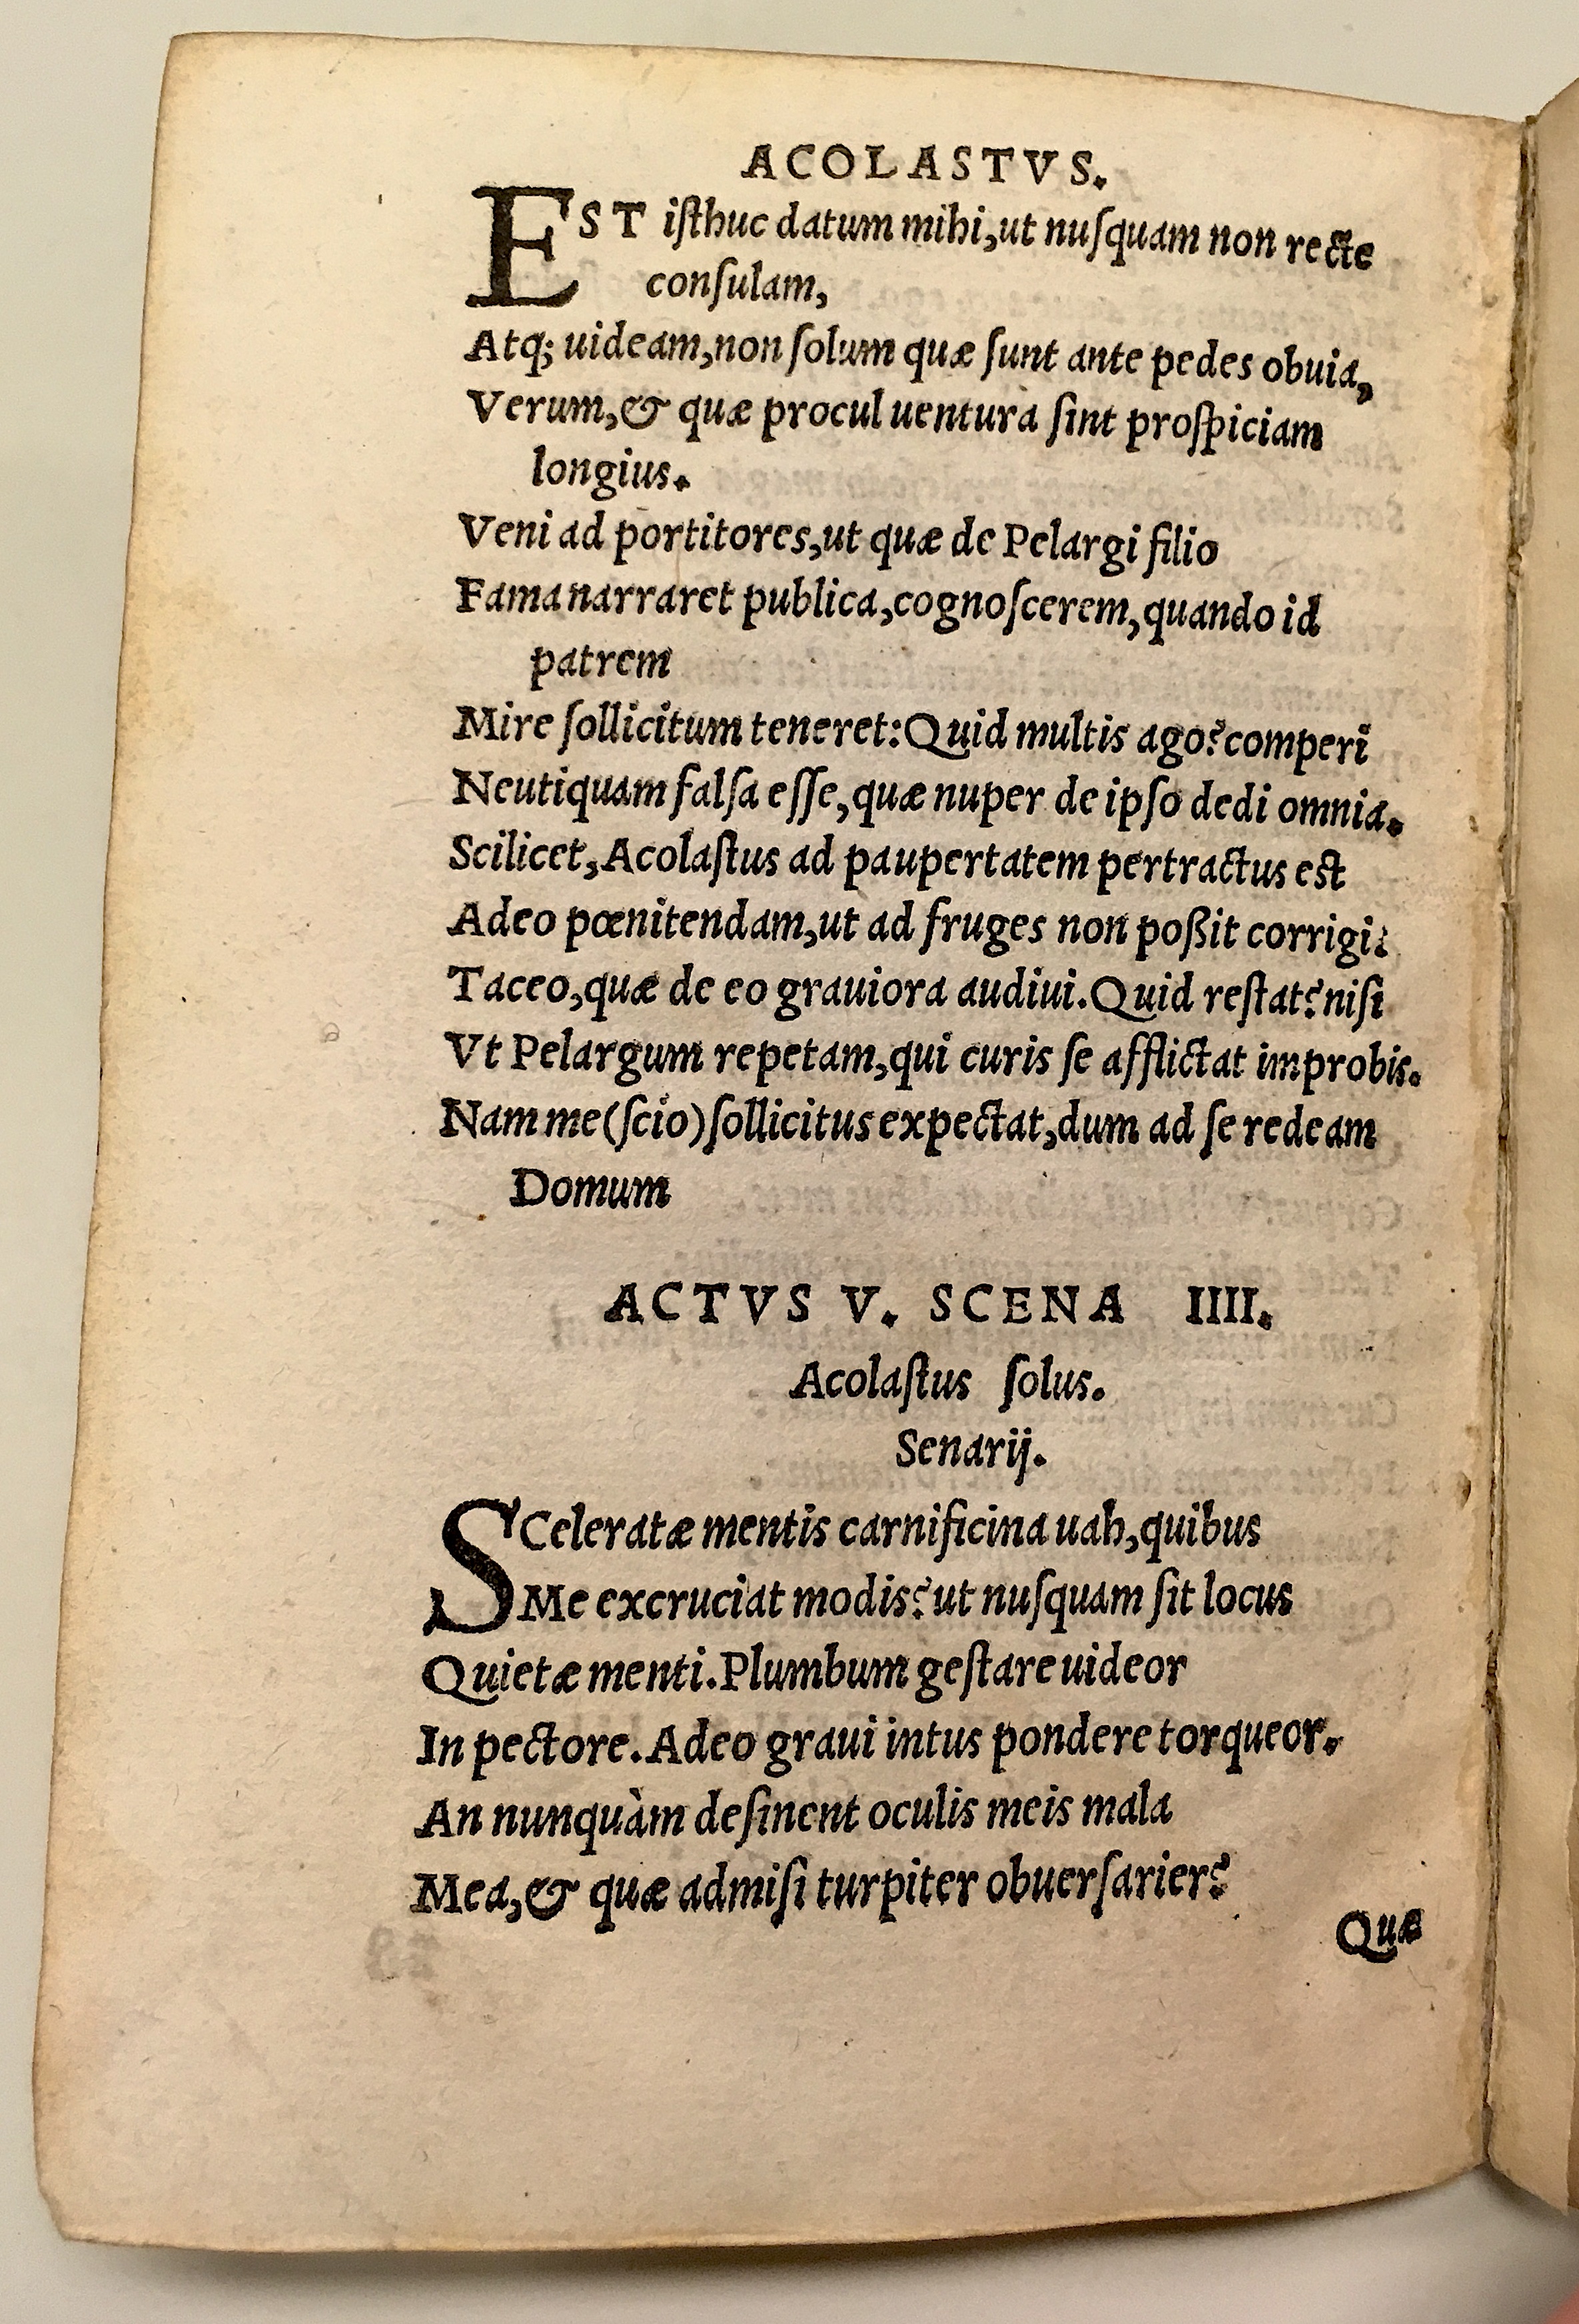 ACOLASTVS.
EST iſthuc datum mihi,ut nuſquam non recte
conſulam,
Atq; uideam,non ſolum quæ ſunt ante pedes obuia,
Verum,& quæ procul uentura ſint proſpiciam
longius.
Veni ad portitores,ut quæ de Pelargi filio
Fama narraret publica,cognoſcerem,quando id
patrem
Mire ſollicitum teneret:Quid multis ago?comperi
Neutiquam falſa eſſe,quæ nuper de ipſo dedi omnia.
Scilicet,Acolaſtus ad paupertatem pertractus est
Adeo pœnitendam,ut ad fruges non poßit corrigi:
Taceo,quæ de eo grauiora audiui.Quid reſtat?niſi
Vt Pelargum repetam,qui curis ſe afflictat improbis.
Nam me(ſcio)ſollicitus expectat,dum ad ſe redeam
Domum
ACTVS V. SCENA IIII.
Acolaſtus ſolus.
Senarij.
SCeleratæ mentis carnificina uah,quibus
Me excruciat modis?ut nuſquam ſit locus
Quietæ menti.Plumbum geſtare uideor
In pectore.Adeo graui intus pondere torqueor.
An nunquàm deſinent oculis meis mala
Mea,& quæ admiſi turpiter obuerſarier?
Quæ